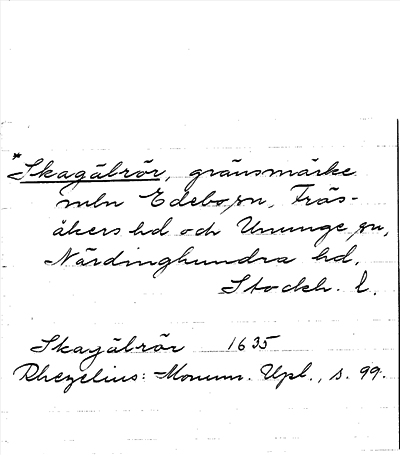 *Skagälrör, gränsmärke
mln Edebo sn, Frös-
åkers hd och Ununge sn,
Närdinghundra hd,
Stockh. l.
Skagälrör 1635
Rhezelius: Monum. Upl., s. 99.